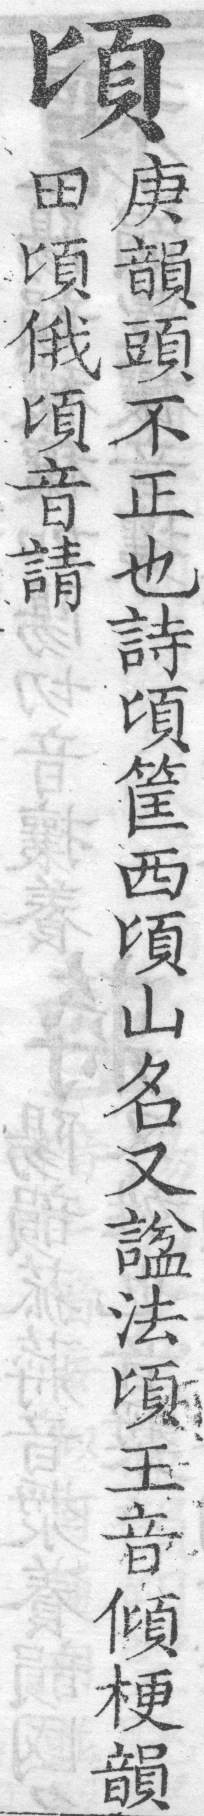 頃
庚韻頭不正也詩頃筐西頃山名又諡法頃王音傾梗韻
田頃俄頃音請